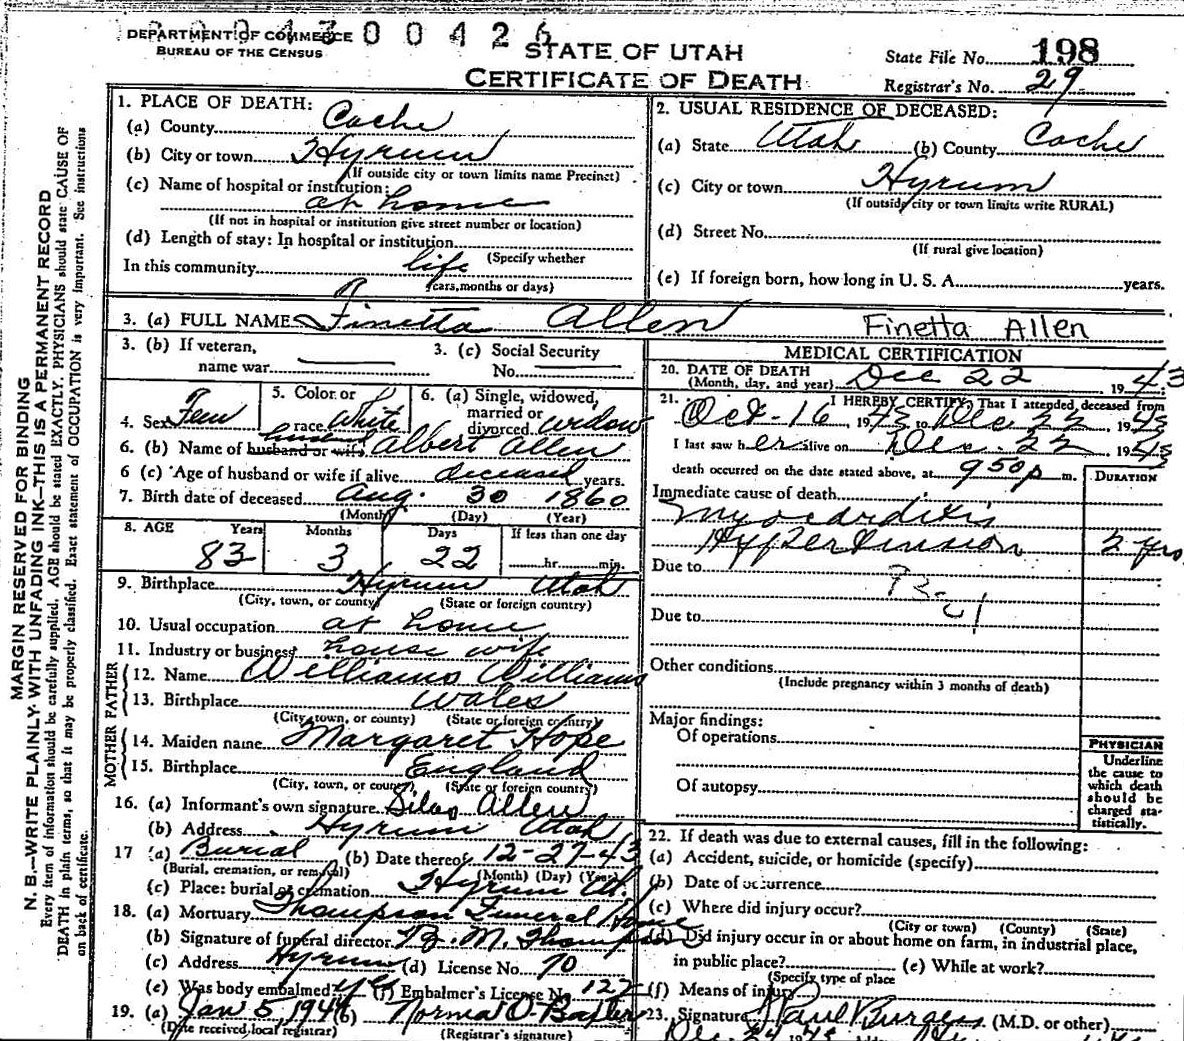 DEPARTMENT OF COMMERCE
BUREAU OF THE CENSUS
STATE OF UTAH
CERTIFICATE OF DEATH
State File No. 198
Registrar's No. 29
MARGIN RESERVED FOR BINDING
N. B.—WRITE PLAINLY WITH UNFADING INK—THIS IS A PERMANENT RECORD
Every item of information should be carefully supplied. AGE should be stated EXACTLY. PHYSICIANS should state CAUSE OF
DEATH in plain terms, so that it may be properly classified. Exact statement of OCCUPATION is very important. See instructions
on back of certificate.
1. PLACE OF DEATH:
(a) County Cache
(b) City or town Hyrum
(If outside city or town limits name Precinct)
(c) Name of hospital or institution:
at home
(If not in hospital or institution give street number or location)
(d) Length of stay: In hospital or institution
(Specify whether
In this community life
years, months or days)
2. USUAL RESIDENCE OF DECEASED:
(a) State Utah (b) County Cache
(c) City or town Hyrum
(If outside city or town limits write RURAL)
(d) Street No.
(If rural give location)
(e) If foreign born, how long in U. S. A. years.
3. (a) FULL NAME Finetta Allen Finetta Allen
3. (b) If veteran,
name war
3. (c) Social Security
No.
4. Sex Fem
5. Color or
race White
6. (a) Single, widowed,
married or
divorced widow
husband
6. (b) Name of husband or wife Albert Allen
6 (c) Age of husband or wife if alive deceased years.
7. Birth date of deceased Aug. 30 1860
(Month) (Day) (Year)
8. AGE Years Months Days If less than one day
83 3 22 hr. min.
9. Birthplace Hyrum Utah
(City, town, or county) (State or foreign country)
10. Usual occupation at home
11. Industry or business house wife
FATHER
12. Name Williams Williams
13. Birthplace Wales
(City, town, or county) (State or foreign country)
MOTHER
14. Maiden name Margaret Hope
15. Birthplace England
(City, town, or county) (State or foreign country)
16. (a) Informant's own signature Silas Allen
(b) Address Hyrum Utah
17 (a) Burial (b) Date thereof 12-27-43
(Burial, cremation, or removal) (Month) (Day) (Year)
(c) Place: burial or cremation Hyrum Ut.
18. (a) Mortuary Thompson Funeral Home
(b) Signature of funeral director M. Thompson
(c) Address Hyrum (d) License No. 70
(e) Was body embalmed? yes (f) Embalmer's License No. 127
19. (a) Jan 5, 1944 (b) Norma O.
(Date received local registrar) (Registrar's signature)
MEDICAL CERTIFICATION
20. DATE OF DEATH
(Month, day, and year) Dec 22, 1943
21. I HEREBY CERTIFY, That I attended deceased from
Oct-16, 1943 to Dec 22, 1943
I last saw her alive on Dec. 22 1943
death occurred on the date stated above, at 9 50 p m.
DURATION
Immediate cause of death
Myocarditis
Hypertension 2 yrs
Due to
Due to
Other conditions
(Include pregnancy within 3 months of death)
Major findings:
Of operations
Of autopsy
PHYSICIAN
Underline
the cause to
which death
should be
charged sta-
tistically.
22. If death was due to external causes, fill in the following:
(a) Accident, suicide, or homicide (specify)
(b) Date of occurrence
(c) Where did injury occur?
(City or town) (County) (State)
(d) Did injury occur in or about home on farm, in industrial place,
in public place? (e) While at work?
(Specify type of place
(f) Means of injury
23. Signature Paul Burgess (M.D. or other)